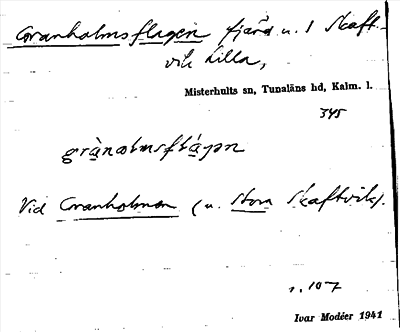 Granholmsflagen fjärd n. l Skaft-
vik Lilla,
Misterhults sn, Tunaläns hd, Kalm. l.
345
grànɷlmsflágən
Vid Granholmen (n. Stora Skaftvik).
s. 107
Ivar Modéer 1941